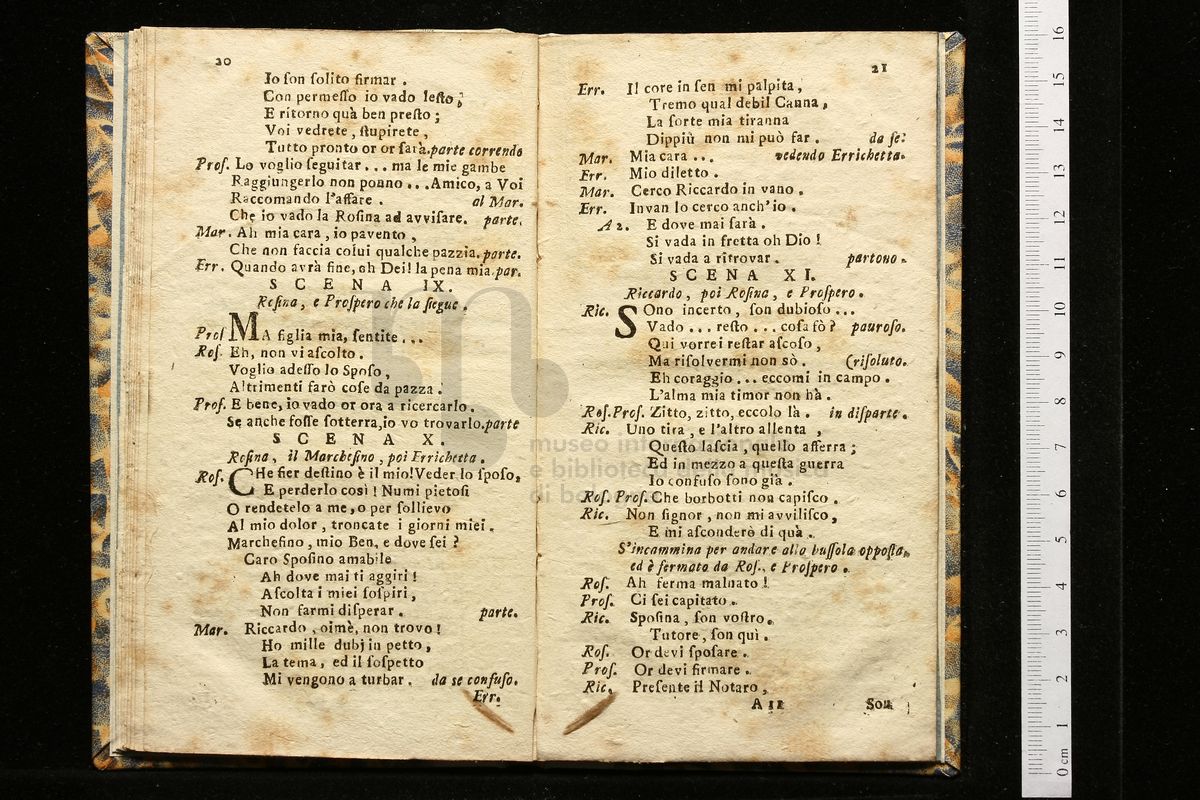 20
Io ſon ſolito firmar .
Con permeſſo io vado leſto;
E ritorno quà ben preſto ;
Voi vedrete , ſtupirete ,
Tutto pronto or or ſarà. parte correndo
Proſ. Lo voglio ſeguitar . . . ma le mie gambe
Raggiungerlo non ponno . . . Amico, a Voi
Raccomando l'affare . al Mar.
Che io vado la Roſina ad avviſare. parte.
Mar. Ah mia cara , io pavento ,
Che non faccia colui qualche pazzia. parte.
Err. Quando avrà fine, oh Dei! la pena mia. par.
SCENA IX.
Roſina, e Proſpero che la ſiegue .
Proſ MA figlia mia, ſentite . . .
Roſ. Eh, non vi aſcolto .
Voglio adeſſo lo Spoſo ,
Altrimenti farò coſe da pazza .
Proſ. E bene, io vado or ora a ricercarlo .
Se anche foſſe ſotterra, io vo trovarlo. parte
SCENA X.
Roſina, il Marcheſino , poi Errichetta .
Roſ. CHe fier deſtino è il mio! Veder lo ſpoſo,
E perderlo così ! Numi pietoſi
O rendetelo a me, o per ſollievo
Al mio dolor , troncate i giorni miei .
Marcheſino , mio Ben, e dove ſei ?
Caro Spoſino amabile
Ah dove mai ti aggiri !
Aſcolta i miei ſoſpiri ,
Non farmi diſperar . parte.
Mar. Riccardo , oimè, non trovo !
Ho mille dubj in petto ,
La tema , ed il ſoſpetto
Mi vengono a turbar . da se confuſo.
Err.
21
Err. Il core in ſen mi palpita ,
Tremo qual debil Canna ,
La ſorte mia tiranna
Dippiù non mi può far . da ſe.
Mar. Mia cara . . . vedendo Errichetta.
Err. Mio diletto .
Mar. Cerco Riccardo in vano .
Err. Invan lo cerco anch'io .
A 2. E dove mai ſarà .
Si vada in fretta oh Dio !
Si vada a ritrovar . partono .
SCENA XI.
Riccardo , poi Roſina , e Proſpero .
Ric. SOno incerto , ſon dubioſo . . .
Vado . . . reſto . . . coſa fò ? pauroſo.
Qui vorrei reſtar aſcoſo ,
Ma riſolvermi non sò . (riſoluto.
Eh coraggio . . . eccomi in campo .
L'alma mia timor non hà .
Roſ. Proſ. Zitto, zitto, eccolo là . in diſparte .
Ric. Uno tira , e l'altro allenta ,
Queſto laſcia , quello afferra ;
Ed in mezzo a queſta guerra
Io confuſo ſono già .
Roſ. Proſ. Che borbotti non capiſco .
Ric. Non ſignor , non mi avviliſco ,
E mi aſconderò di quà .
S'incammina per andare alla buſſola oppoſta,
ed è fermato da Roſ., e Proſpero .
Roſ. Ah ferma malnato !
Proſ. Ci ſei capitato .
Ric. Spoſina , ſon voſtro .
Tutore , ſon quì .
Roſ. Or devi ſpoſare .
Proſ. Or devi firmare .
Ric. Preſente il Notaro ,
A 11 Son